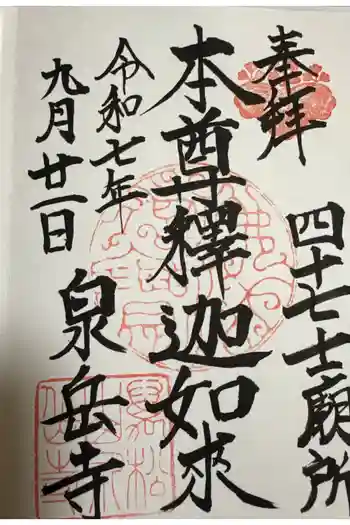 奉拝
四十七士廟所
本尊釋迦如来
令和七年
九月廿一日
泉岳寺